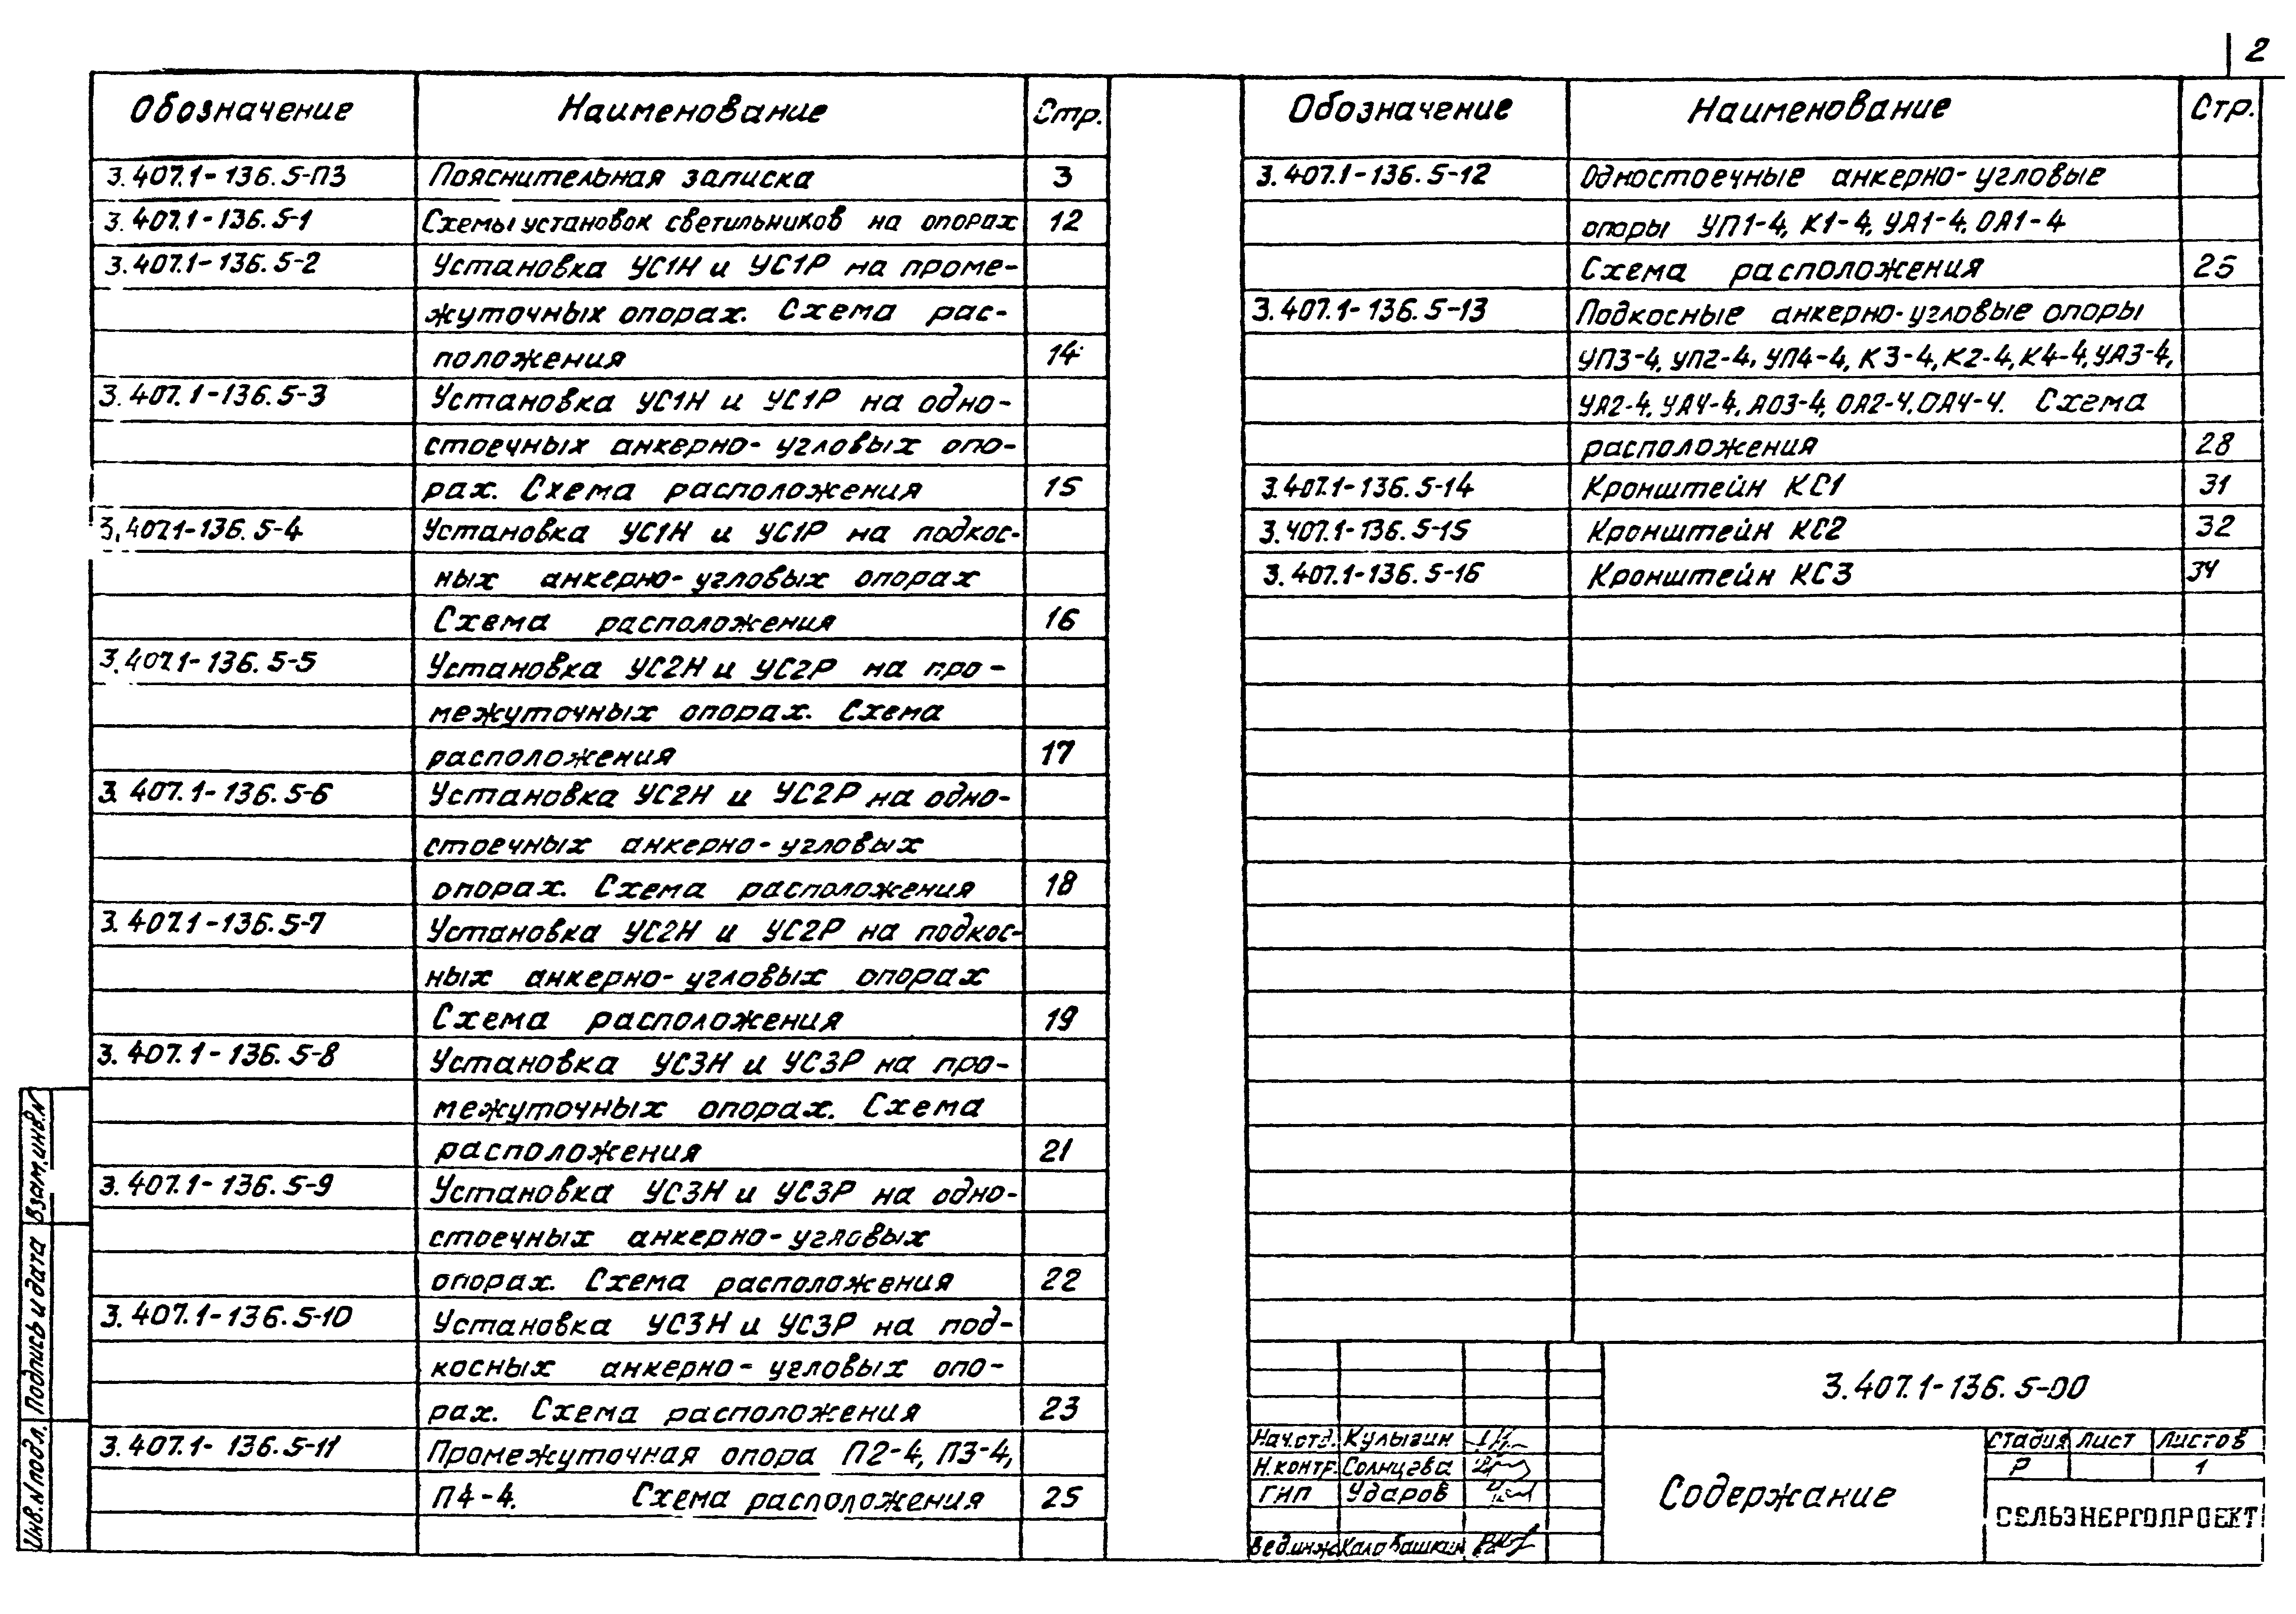 2
Обозначение Наименование Стр.
3.407.1-136.5-ПЗ Пояснительная записка 3
3.407.1-136.5-1 Схемы установок светильников на опорах 12
3.407.1-136.5-2 Установка УС1Н и УС1Р на проме-
жуточных опорах. Схема рас-
положения 14
3.407.1-136.5-3 Установка УС1Н и УС1Р на одно-
стоечных анкерно-угловых опо-
рах. Схема расположения 15
3.407.1-136.5-4 Установка УС1Н и УС1Р на подкос-
ных анкерно-угловых опорах
Схема расположения 16
3.407.1-136.5-5 Установка УС2Н и УС2Р на про-
межуточных опорах. Схема
расположения 17
3.407.1-136.5-6 Установка УС2Н и УС2Р на одно-
стоечных анкерно-угловых
опорах. Схема расположения 18
3.407.1-136.5-7 Установка УС2Н и УС2Р на подкос-
ных анкерно-угловых опорах
Схема расположения 19
3.407.1-136.5-8 Установка УС3Н и УС3Р на про-
межуточных опорах. Схема
расположения 21
3.407.1-136.5-9 Установка УС3Н и УС3Р на одно-
стоечных анкерно-угловых
опорах. Схема расположения 22
3.407.1-136.5-10 Установка УС3Н и УС3Р на под-
косных анкерно-угловых опо-
рах. Схема расположения 23
3.407.1-136.5-11 Промежуточная опора П2-4, П3-4,
П4-4. Схема расположения 25
Обозначение Наименование Стр.
3.407.1-136.5-12 Одностоечные анкерно-угловые
опоры УП1-4, К1-4, УА1-4, ОА1-4
Схема расположения 25
3.407.1-136.5-13 Подкосные анкерно-угловые опоры
УП3-4, УП2-4, УП4-4, К3-4, К2-4, К4-4, УА3-4,
УА2-4, УА4-4, АО3-4, ОА2-4, ОА4-4. Схема
расположения 28
3.407.1-136.5-14 Кронштейн КС1 31
3.407.1-136.5-15 Кронштейн КС2 32
3.407.1-136.5-16 Кронштейн КС3 34
3.407.1-136.5-00
Нач.отд. Кулыгин
Н.контр. Солнцева
ГИП Ударов
Вед.инж Калабашкин
Содержание
Стадия Лист Листов
Р 1
СЕЛЬЭНЕРГОПРОЕКТ
Инв.№подл. Подпись и дата Взам.инв.№